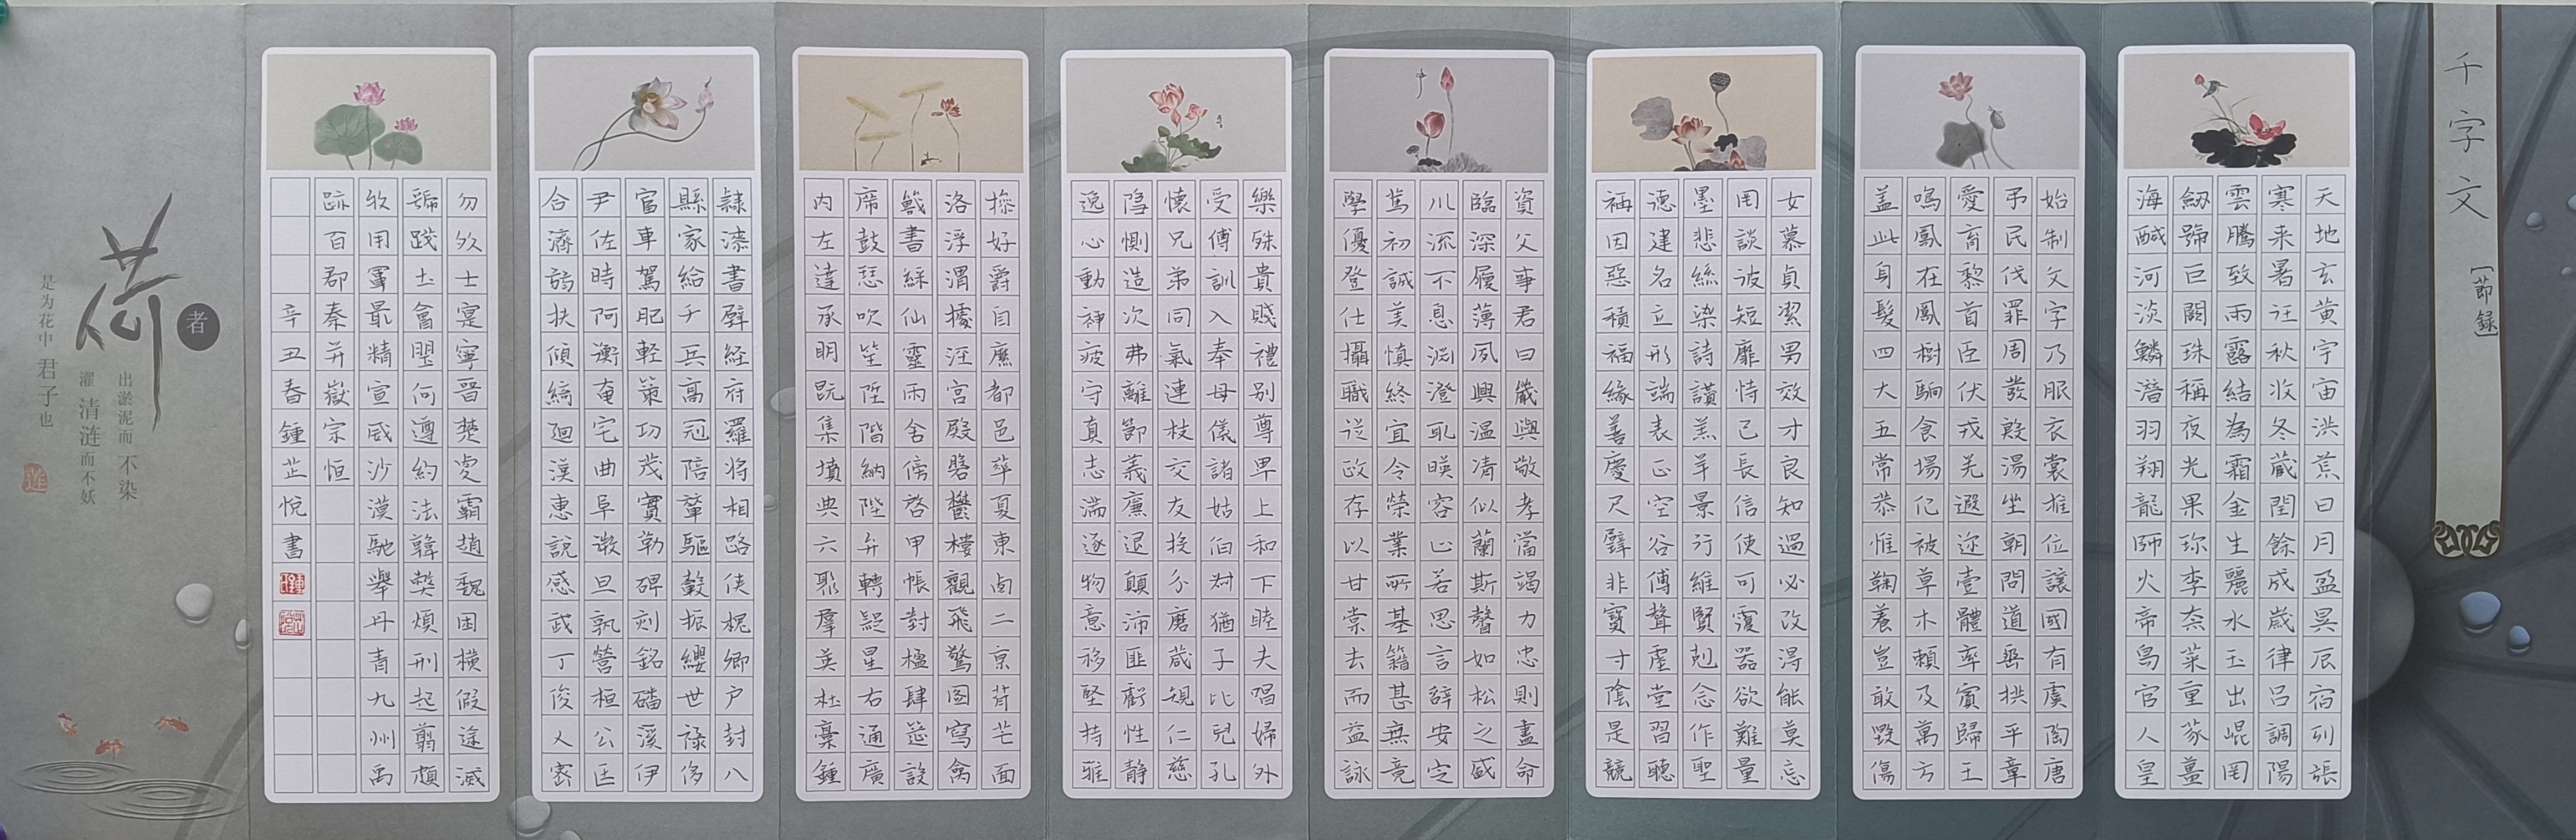 千字文
[節録]
天地玄黄宇宙洪荒日月盈昃辰宿列張
寒来暑往秋收冬蔵閏餘成歲律吕調陽
雲騰致雨露結為霜金生麗水玉出崐罔
劒號巨闕珠稱夜光果珍李柰菜重芥薑
海醎河淡鱗潜羽翔龍師火帝鳥官人皇
始制文字乃服衣裳推位讓國有虞陶唐
弔民伐罪周發殷湯坐朝問道垂拱平章
愛育黎首臣伏戎羌遐迩壹體率賓歸王
鳴鳳在鳳樹駒食場化被草木賴及萬方
盖此身髮四大五常恭惟鞠養豈敢毀傷
女慕貞潔男效才良知過必改得能莫忘
罔談彼短靡恃己長信使可覆器欲難量
墨悲絲染詩讃羔羊景行維賢剋念作聖
德建名立形端表正空谷傳聲虛堂習聽
禍因惡積福緣善慶尺璧非寶寸陰是競
資父事君曰嚴與敬孝當竭力忠則盡命
臨深履薄夙興温凊似蘭斯馨如松之盛
川流不息淵澄取暎容止若思言辭安定
篤初誠美慎終宜令榮業所基籍甚無竟
學優登仕攝職從政存以甘棠去而益詠
樂殊貴賤禮别尊卑上和下睦夫唱婦外
受傅訓入奉母儀諸姑伯叔猶子比兒孔
懷兄弟同氣連枝交友投分磨葴規仁慈
隐惻造次弗離節義廉退顛沛匪虧性静
逸心動神疲守真志滿逐物意移堅持雅
操好爵自縻都邑華夏東西二京背芒面
洛浮渭據涇宮殿盤鬱樓觀飛驚圖寫禽
獸書綵仙靈雨舍傍啓甲帳對楹肆筵設
席鼓瑟吹笙陞階納陛弁轉疑星右通廣
内左達承明既集墳典亦聚羣英杜稾鍾
隸漆書壁経府羅将相路侠槐卿户封八
縣家給千兵髙冠陪輦驅轂振纓世禄侈
富車駕肥軽策功茂實勒碑刻銘磻溪伊
尹佐時阿衡奄宅曲阜微旦孰營桓公匡
合濟弱扶傾綺廻漢惠說感武丁俊乂密
勿多士寔寧晉楚更霸趙魏困横假途滅
虢踐土會盟何遵約法韓弊煩刑起翦頗
牧用軍最精宣威沙漠馳舉丹青九州禹
跡百郡秦并嶽宗恒
辛丑春鍾芷悦書
荷者
出淤泥而不染
濯清涟而不妖
是为花中君子也
莲